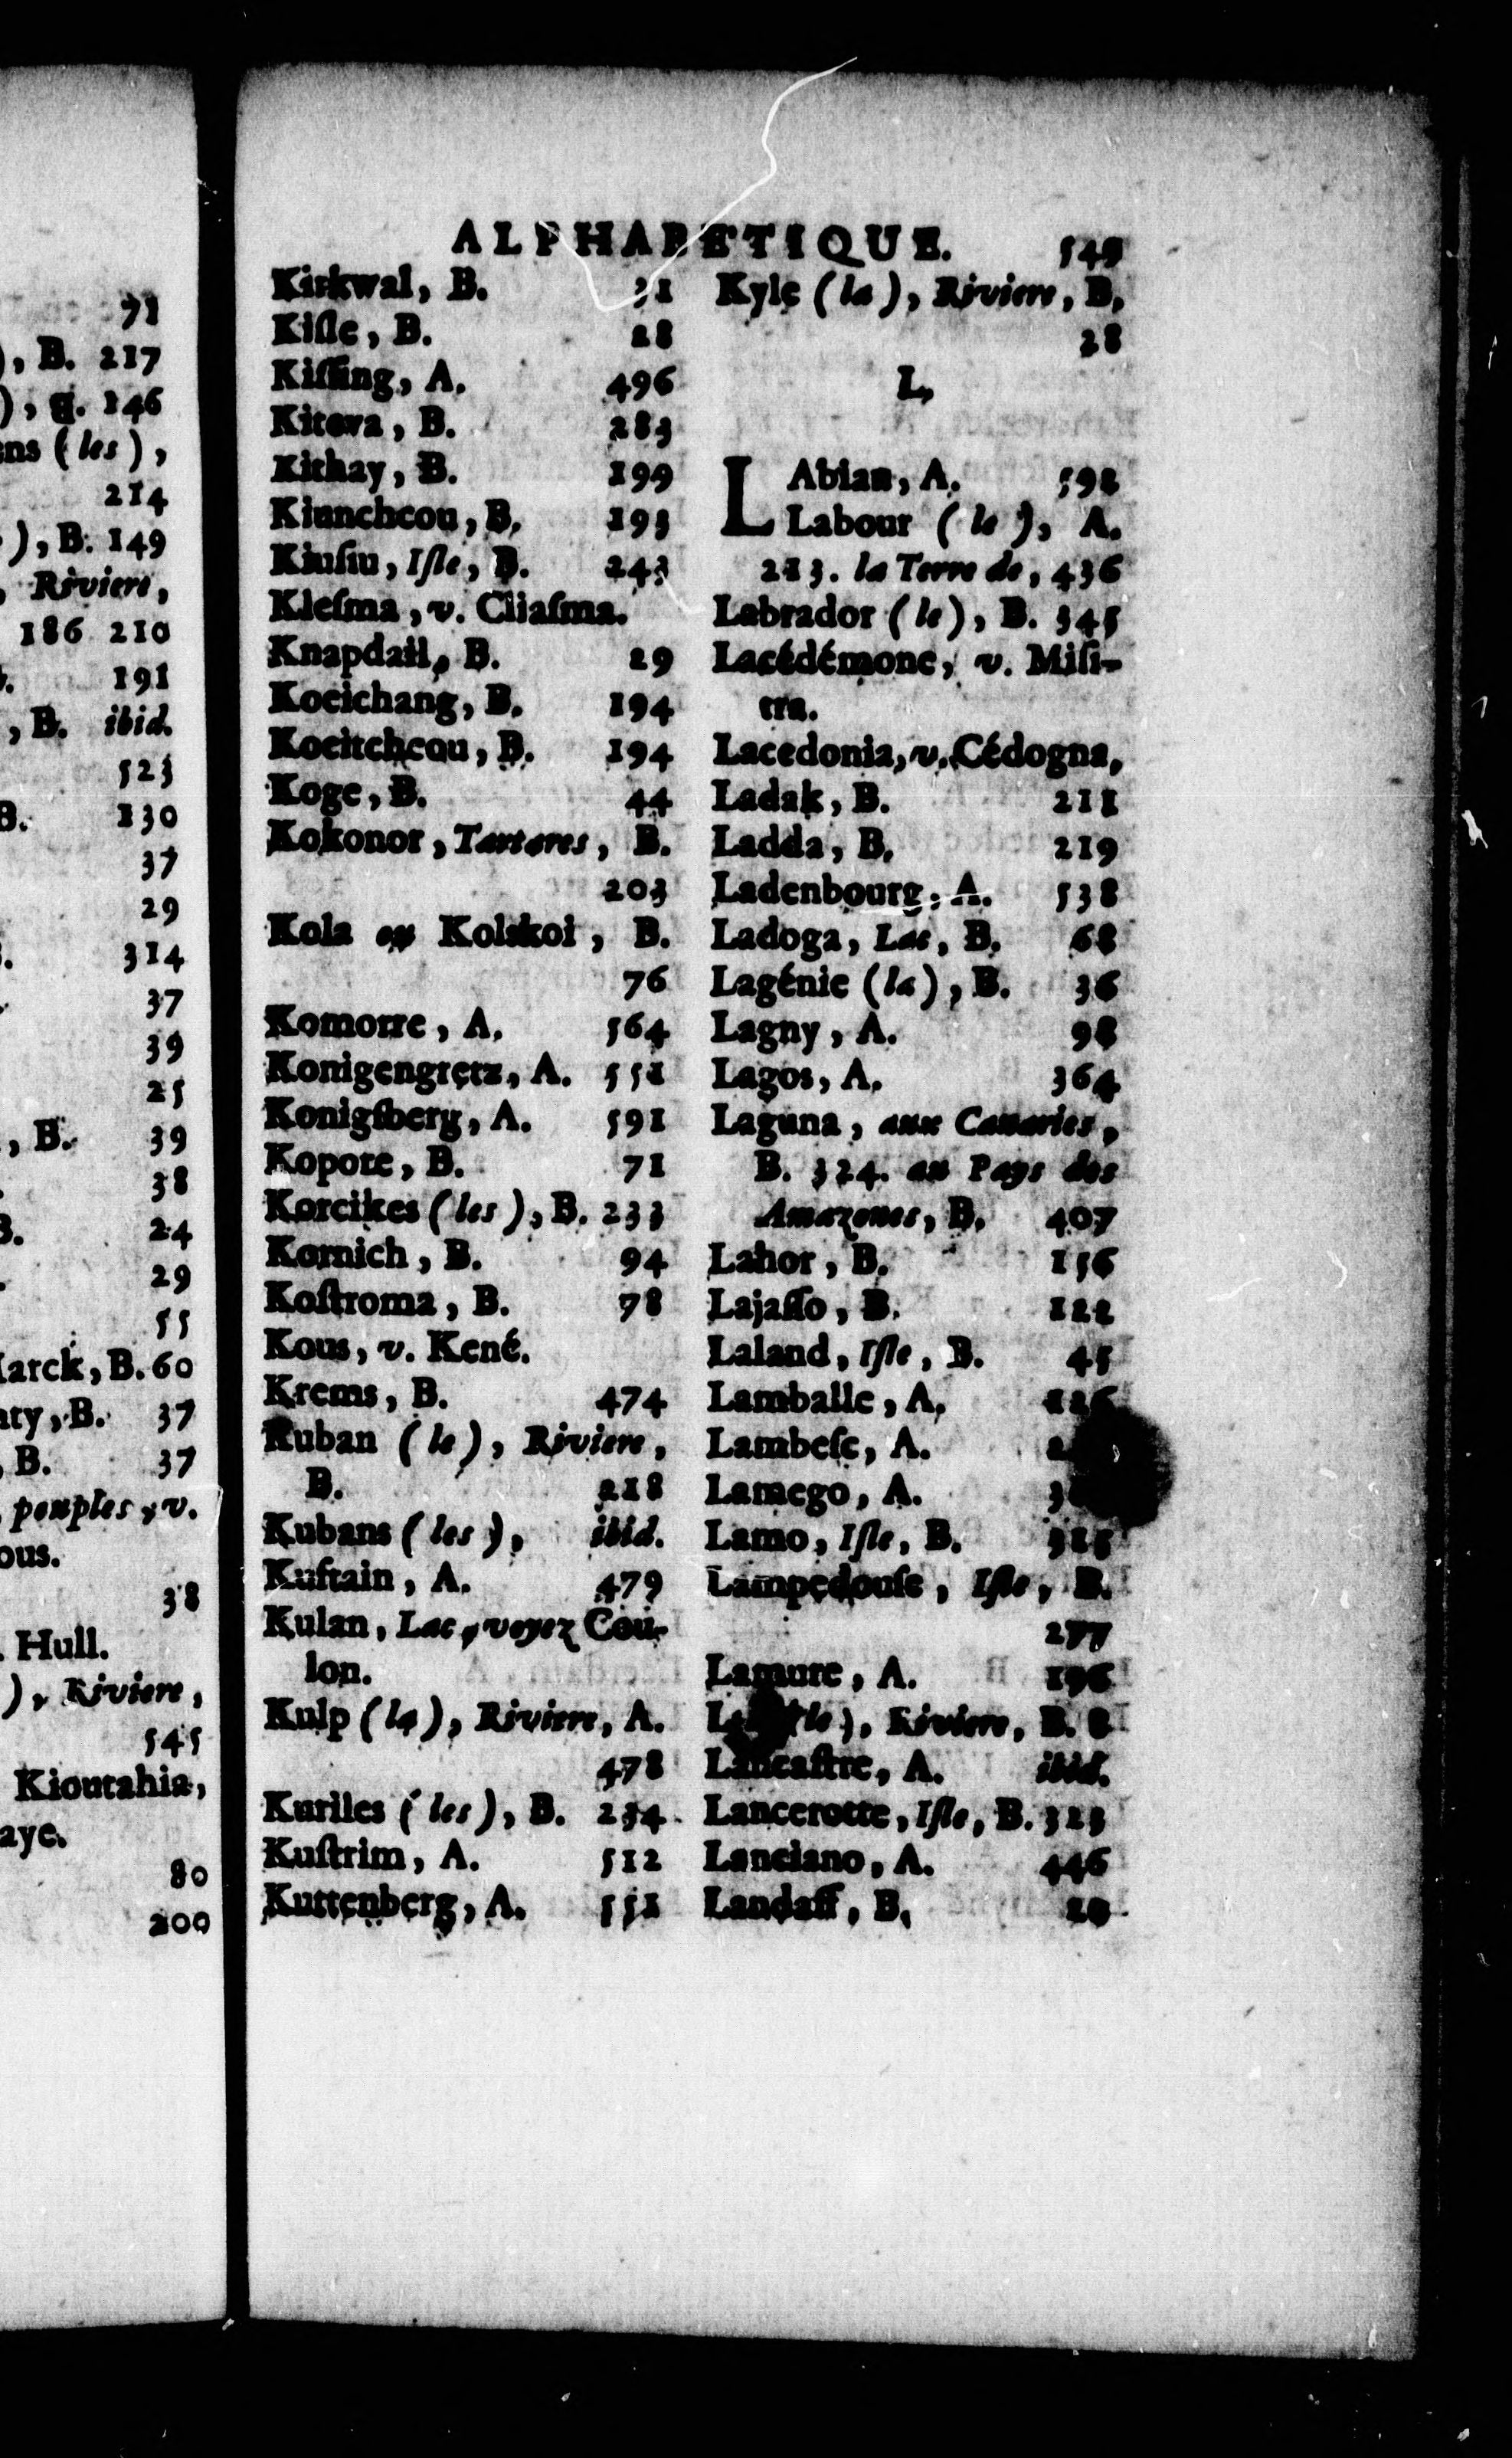 71
), B. 217
), B. 146
ens (les),
214
), B. 149
, Riviere,
186 210
191
, B. ibid.
523
B. 130
37
29
314
37
39
25
, B. 39
38
B. 24
29
55
Marck, B. 60
nty, B. 37
, B. 37
peuples, v.
ous.
38
. Hull.
), Riviere,
545
Kioutahia,
aye.
80
200
ALPHABETIQUE. 549
Kirkwal, B. 31
Kiſle, B. 28
Kiſſing, A. 496
Kiteva, B. 283
Kithay, B. 199
Kiunchcou, B. 193
Kiuſiu, Iſle, B. 243
Kleſma, v. Cliaſma.
Knapdail, B. 29
Koeichang, B. 194
Koeitchcou, B. 194
Koge, B. 44
Kokonor, Tartares, B.
203
Kola ou Kolskoi, B.
76
Komorre, A. 564
Konigengretz, A. 551
Konigſberg, A. 591
Kopore, B. 71
Korcikes (les), B. 233
Kornich, B. 94
Koſtroma, B. 78
Kous, v. Kené.
Krems, B. 474
Kuban (le), Riviere,
B. 218
Kubans (les), ibid.
Kuftain, A. 479
Kulan, Lac, voyez Cou-
lon.
Kulp (la), Riviere, A.
478
Kuriles (les), B. 234
Kuſtrim, A. 512
Kuttenberg, A. 551
Kyle (la), Riviere, B.
28
L.
LAbian, A. 592
Labour (le), A.
213. la Terre de, 436
Labrador (le), B. 345
Lacédémone, v. Miſi-
tra.
Lacedonia, v. Cédogna.
Ladak, B. 211
Ladda, B. 219
Ladenbourg, A. 538
Ladoga, Lac, B. 68
Lagénie (la), B. 36
Lagny, A. 98
Lagos, A. 364
Laguna, aux Canaries,
B. 324. au Pays des
Amazones, B. 407
Lahor, B. 156
Lajaſſo, B. 122
Laland, Iſle, B. 45
Lamballe, A.
Lambeſc, A.
Lamego, A.
Lamo, Iſle, B.
Lampedouſe, Iſle, B.
277
Lamure, A. 196
(le), Riviere, B. 8
Lancaſtre, A. ibid.
Lancerotte, Iſle, B. 323
Lanciano, A. 446
Landaff, B. 20